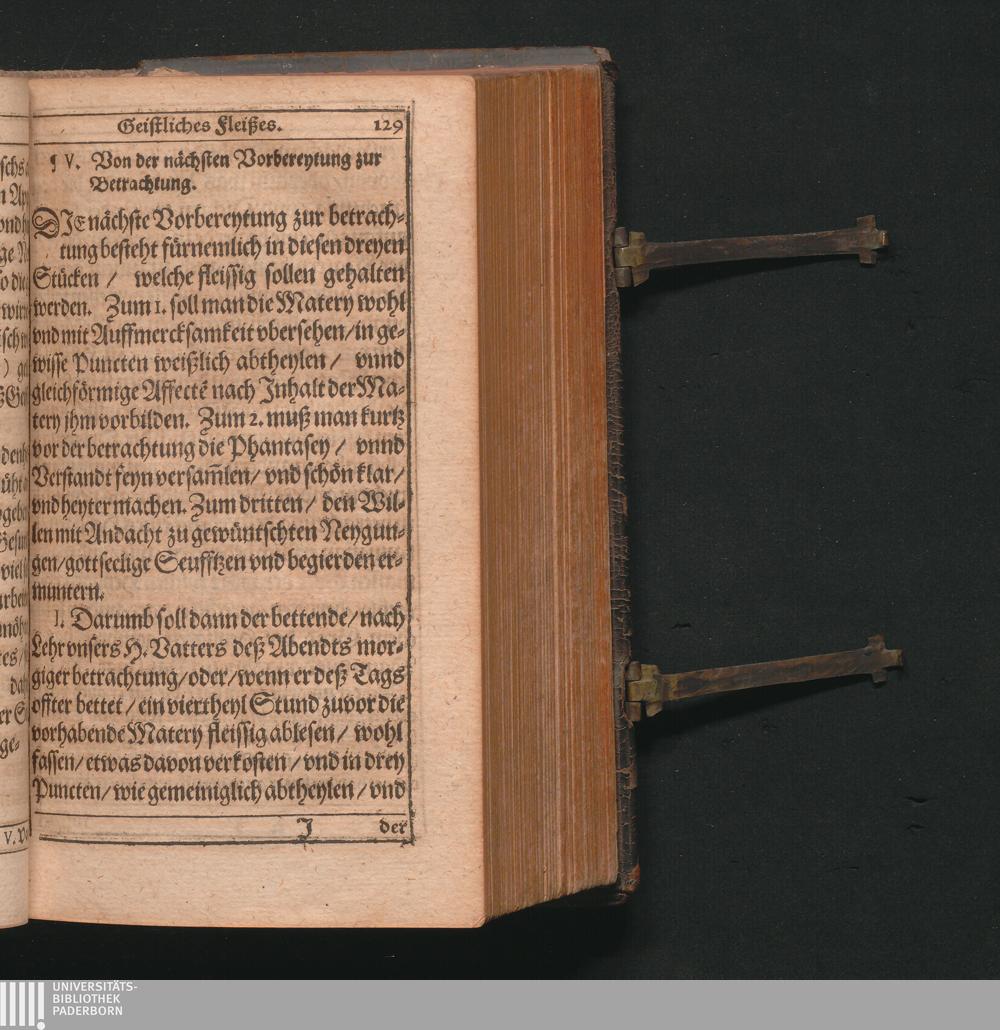 Geistliches Fleißes. 129
¶ V. Von der nächsten Vorbereytung zur
Betrachtung.
DIE nächste Vorbereytung zur betrach-
tung besteht fürnemlich in diesen dreyen
Stücken / welche fleissig sollen gehalten
werden. Zum 1. soll man die Matery wohl
vnd mit Auffmercksamkeit vbersehen/ in ge-
wisse Puncten weißlich abtheylen / vnnd
gleichförmige Affectē nach Inhalt der Ma-
tery jhm vorbilden. Zum 2. muß man kurtz
vor der betrachtung die Phantasey / vnnd
Verstandt feyn versam̄len/ vnd schön klar/
vnd heyter machen. Zum dritten / den Wil-
len mit Andacht zu gewüntschten Neygun-
gen/ gottseelige Seufftzen vnd begierden er-
muntern.
I. Darumb soll dann der bettende/ nach
Lehr vnsers H. Vatters deß Abendts mor-
giger betrachtung/ oder/ wenn er deß Tags
offter bettet / ein viertheyl Stund zuvor die
vorhabende Matery fleissig ablesen / wohl
fassen/ etwas davon verkosten / vnd in drey
Puncten/ wie gemeiniglich abtheylen / vnd
J der
UNIVERSITÄTS-
BIBLIOTHEK
PADERBORN